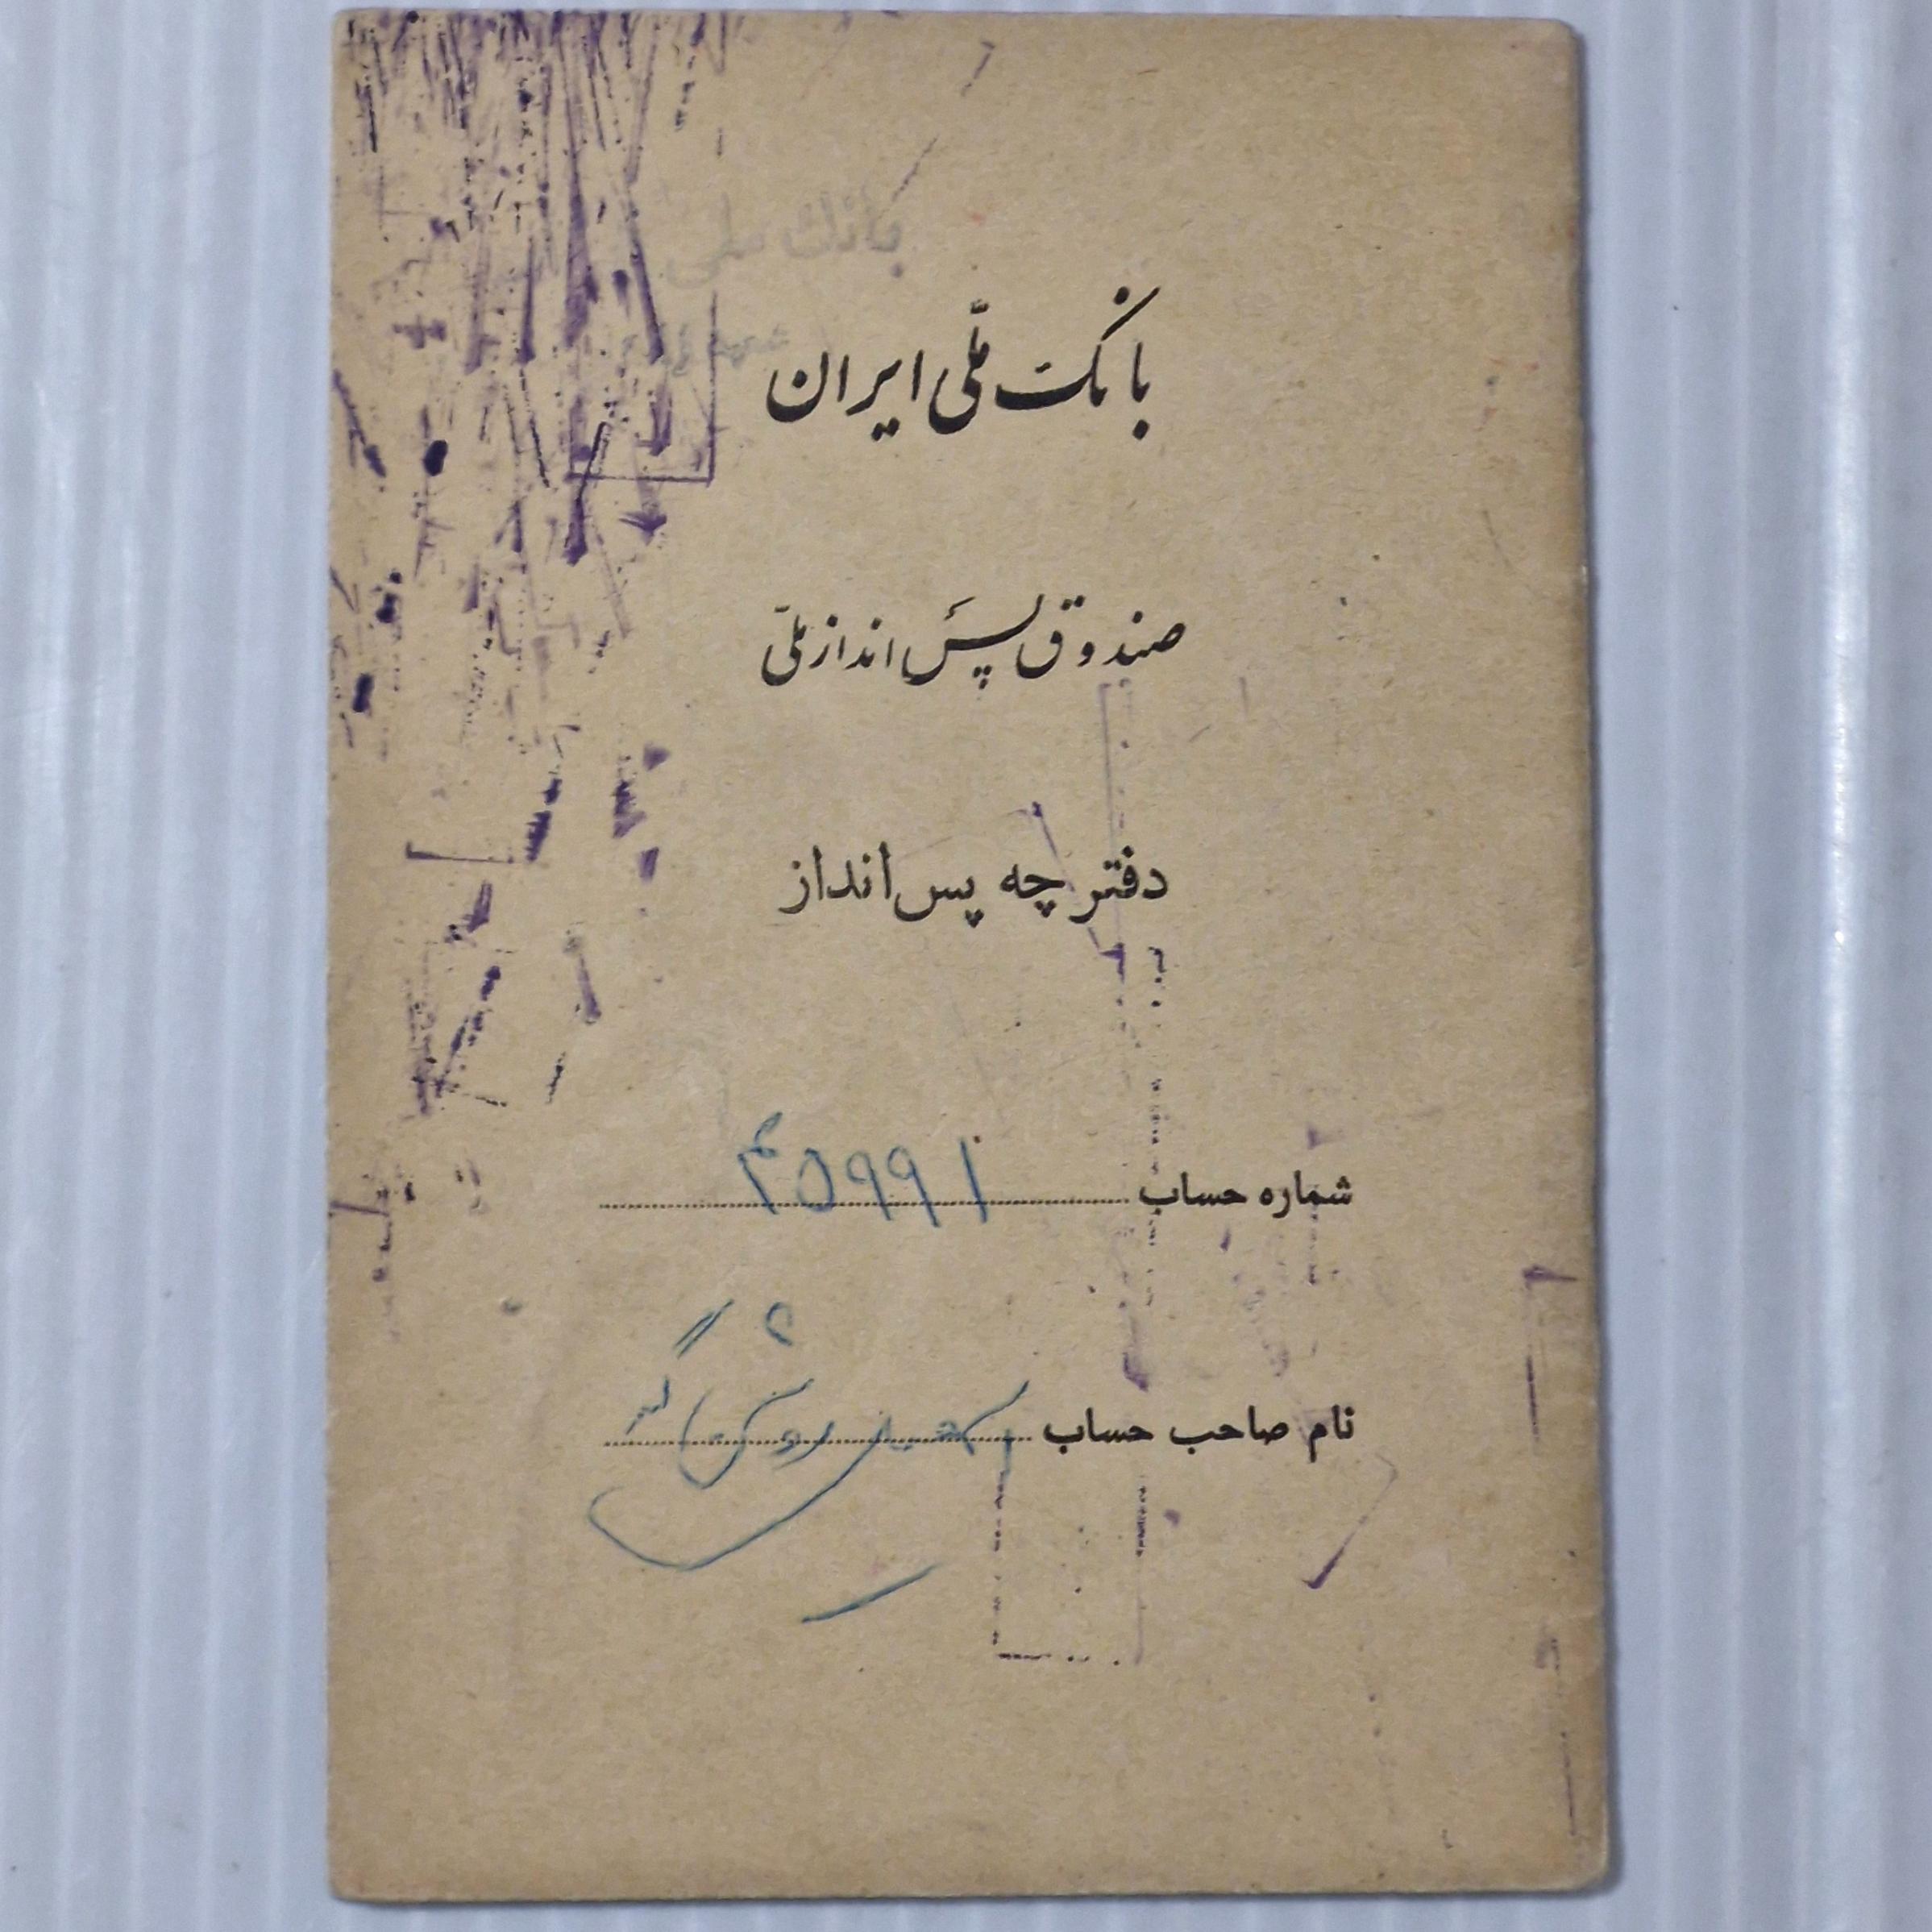 بانک ملی
بانک ملّی ایران
صندوق پس انداز ملّی
دفترچه پس انداز
شماره حساب ۴۵۹۹۱
نام صاحب حساب